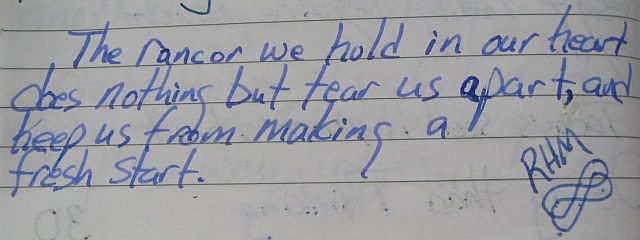 The rancor we hold in our heart
does nothing but tear us apart, and
keep us from making a
fresh start.
RHM